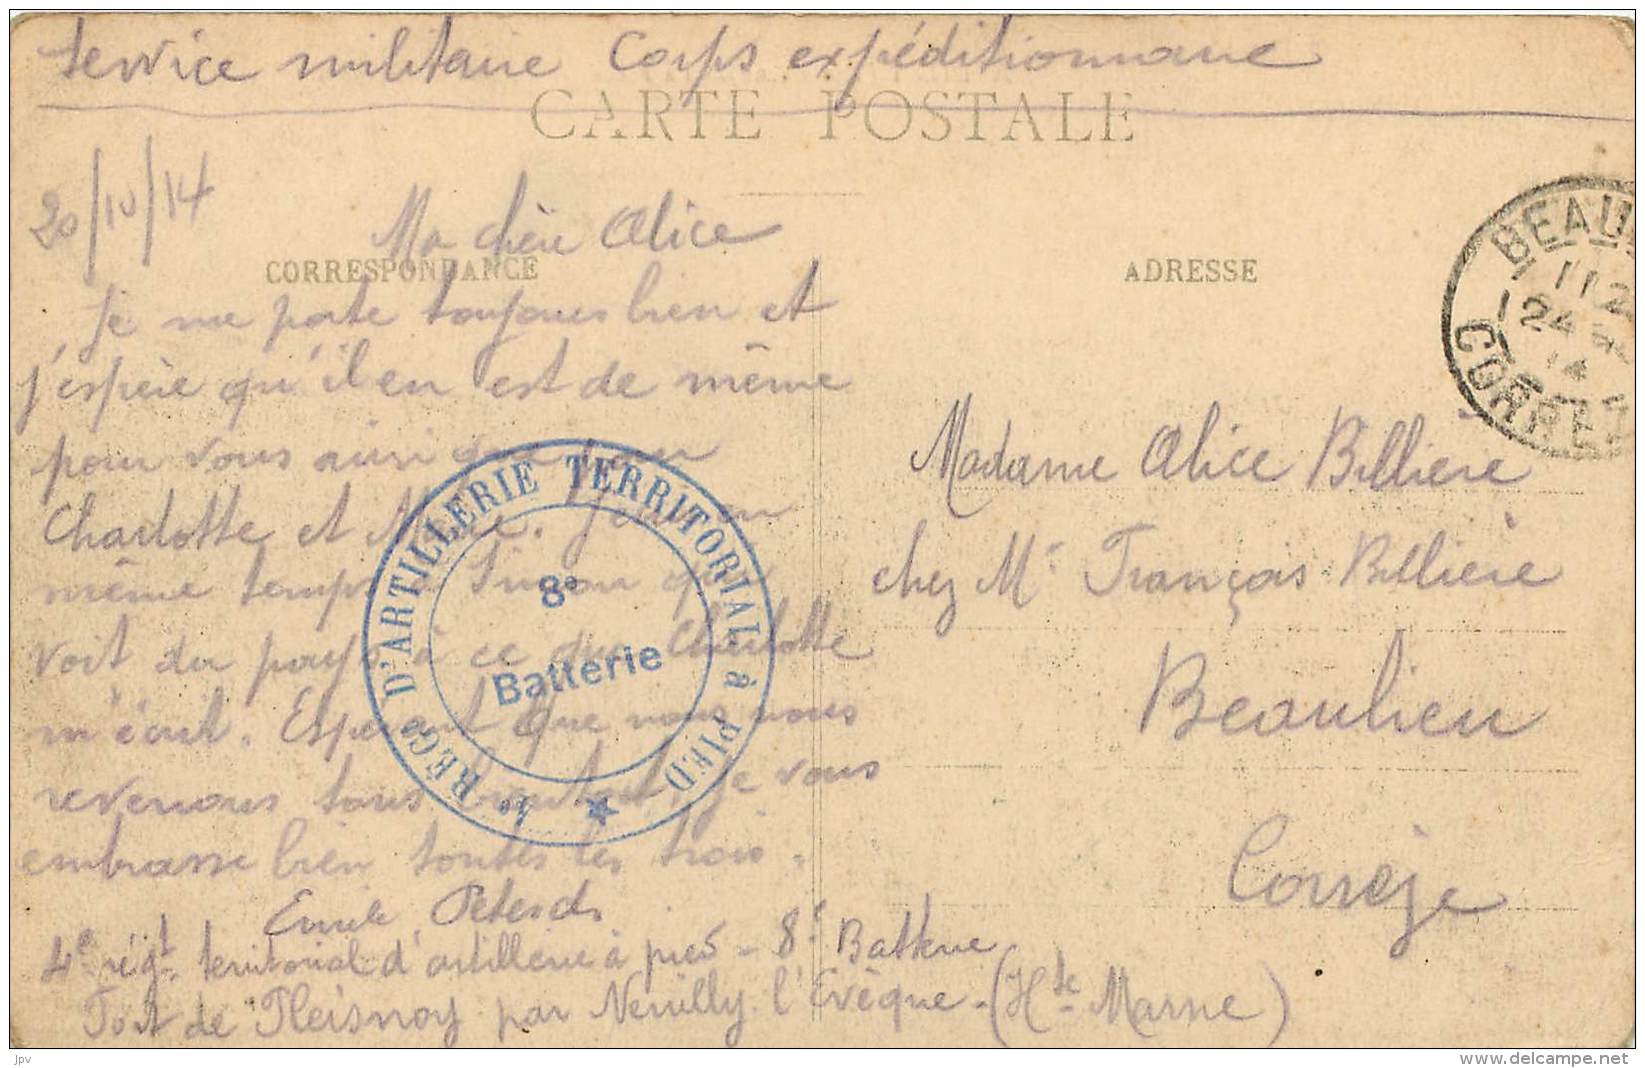 Service militaire Corps expéditionnaire
CARTE POSTALE
20/10/14
Ma chère Alice
CORRESPONDANCE
Je me porte toujours bien et
j'espère qu'il en est de même
pour vous ainsi que pour
Charlotte et Alice. Je
même temps que
voit du pays à ce que Charlotte
m'écrit. Espérant que nous nous
revenons tous bientôt, je vous
embrasse bien toutes les trois.
Emile
4e régt territorial d'artillerie à pied - 8e Batterie
Fort de Pleisnoy par Neuilly l'Evèque - (Hte Marne)
1er RÉGt D'ARTILLERIE TERRITORIAL à PIED
8e
Batterie
ADRESSE
BEAU
11
24
14
CORRÈZ
Madame Alice Billière
chez Mr François Billière
Beaulieu
Corrèze
jpv
www.delcampe.net